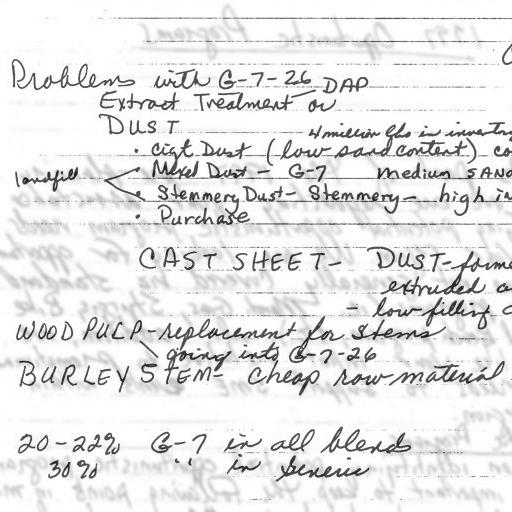 Problems with G-7-26 DAP
Extract Treatment on
DUST
4 million lbs in inventory
• Cigt Dust (low sand content) co
landfill • Mixed Dust - G-7 medium SAND
• Stemmery Dust - Stemmery - high in
• Purchase
CAST SHEET - DUST-forme
extruded
- low-filling
WOOD PULP - replacement for stems
going into G-7-26
BURLEY STEM - cheap raw material
20-22% G-7 in all blends
30% " in Generic